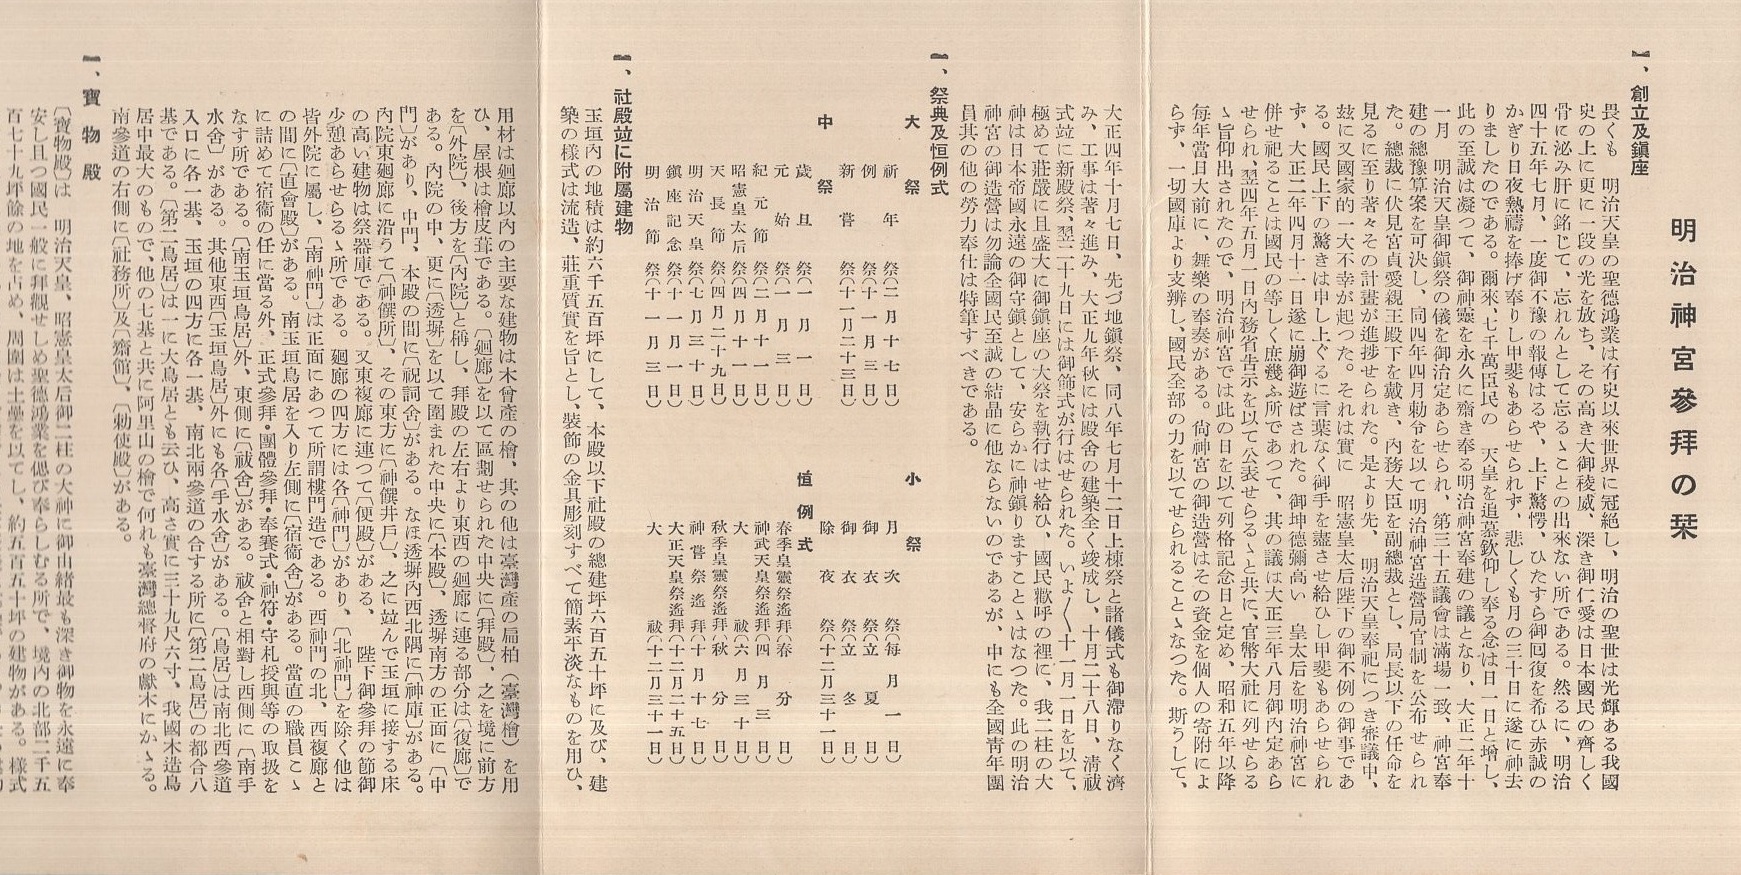 明治神宮參拜の栞
一、創立及鎭座
畏くも　明治天皇の聖德鴻業は有史以來世界に冠絕し、明治の聖世は光輝ある我國
史の上に更に一段の光を放ち、その高き大御稜威、深き御仁愛は日本國民の齊しく
骨に泌み肝に銘じて、忘れんとして忘るゝことの出來ない所である。然るに、明治
四十五年七月、一度御不豫の報傳はるや、上下驚愕、ひたすら御囘復を希ひ赤誠の
かぎり日夜熱禱を捧げ奉りし甲斐もあらせられず、悲しくも月の三十日に遂に神去
りましたのである。爾來、七千萬臣民の　天皇を追慕欽仰し奉る念は日一日と增し、
此の至誠は凝つて、御神靈を永久に齋き奉る明治神宮奉建の議となり、大正二年十
一月　明治天皇御鎭祭の儀を御治定あらせられ、第三十五議會は滿場一致、神宮奉
建の總豫算案を可決し、同四年四月勅令を以て明治神宮造營局官制を公布せられ
た。總裁に伏見宮貞愛親王殿下を戴き、內務大臣を副總裁とし、局長以下の任命を
見るに至り著々その計畫が進捗せられた。是より先、　明治天皇奉祀につき審議中、
玆に又國家的一大不幸が起つた。それは實に　昭憲皇太后陛下の御不例の御事であ
る。國民上下の驚きは申し上ぐるに言葉なく御手を盡させ給ひし甲斐もあらせられ
ず、大正三年四月十一日遂に崩御遊ばされた。御坤德彌高い　皇太后を明治神宮に
併せ祀ることは國民の等しく庶幾ふ所であつて、其の議は大正三年八月御內定あら
せられ、翌四年五月一日內務省吿示を以て公表せらるゝと共に、官幣大社に列せらる
ゝ旨仰出されたので、明治神宮では此の日を以て列格記念日と定め、昭和五年以降
每年當日大前に、舞樂の奉奏がある。尙神宮の御造營はその資金を個人の寄附によ
らず、一切國庫より支辨し、國民全部の力を以てせられることゝなつた。斯うして、
大正四年十月七日、先づ地鎭祭、同八年七月十二日上棟祭と諸儀式も御滯りなく濟
み、工事は著々進み、大正九年秋には殿舍の建築全く竣成し、十月二十八日、淸祓
式竝に新殿祭、翌二十九日には御飾式が行はせられた。いよ〱十一月一日を以て、
極めて莊嚴に且盛大に御鎭座の大祭を執行はせ給ひ、國民歡呼の裡に、我二柱の大
神は日本帝國永遠の御守鎭として、安らかに神鎭りますことゝはなつた。此の明治
神宮の御造營は勿論全國民至誠の結晶に他ならないのであるが、中にも全國靑年團
員其の他の勞力奉仕は特筆すべきである。
一、祭典及恒例式
大祭
祈年祭（二月十七日）
例祭（十一月三日）
新嘗祭（十一月二十三日）
中祭
歲旦祭（一月一日）
元始祭（一月三日）
紀元節祭（二月十一日）
昭憲皇太后祭（四月十一日）
天長節祭（四月二十九日）
明治天皇祭（七月三十日）
鎭座記念祭（十一月一日）
明治節祭（十一月三日）
小祭
月次祭（每月一日）
御衣祭（立夏日）
御衣祭（立冬日）
除夜祭（十二月三十一日）
恒例式
春季皇靈祭遙拜（春分日）
神武天皇祭遙拜（四月三日）
大祓（六月三十日）
秋季皇靈祭遙拜（秋分日）
神嘗祭遙拜（十月十七日）
大正天皇祭遙拜（十二月二十五日）
大祓（十二月三十一日）
一、社殿竝に附屬建物
玉垣內の地積は約六千五百坪にして、本殿以下社殿の總建坪六百五十坪に及び、建
築の樣式は流造、莊重質實を旨とし、裝飾の金具彫刻すべて簡素平淡なものを用ひ、
用材は廻廊以內の主要な建物は木曾產の檜、其の他は臺灣產の扁柏（臺灣檜）を用
ひ、屋根は檜皮葺である。〔廻廊〕を以て區劃せられた中央に〔拜殿〕、之を境に前方
を〔外院〕、後方を〔內院〕と稱し、拜殿の左右より東西の廻廊に連る部分は〔復廊〕で
ある。內院の中、更に〔透塀〕を以て圍まれた中央に〔本殿〕、透塀南方の正面に〔中
門〕があり、中門、本殿の間に〔祝詞舍〕がある。なほ透塀內西北隅に〔神庫〕がある。
內院東廻廊に沿うて〔神饌所〕、その東方に〔神饌井戶〕、之に竝んで玉垣に接する床
の高い建物は祭器庫である。又東複廊に連つて〔便殿〕がある、　陛下御參拜の節御
少憩あらせらるゝ所である。廻廊の四方には各〔神門〕があり、〔北神門〕を除く他は
皆外院に屬し、〔南神門〕は正面にあつて所謂樓門造である。西神門の北、西複廊と
の間に〔直會殿〕がある。南玉垣鳥居を入り左側に〔宿衞舍〕がある。當直の職員こゝ
に詰めて宿衞の任に當る外、正式參拜・團體參拜・奉賽式・神符・守札授與等の取扱を
なす所である。〔南玉垣鳥居〕外、東側に〔祓舍〕がある。祓舍と相對し西側に〔南手
水舍〕がある。其他東西〔玉垣鳥居〕外にも各〔手水舍〕がある。〔鳥居〕は南北西參道
入口に各一基、玉垣の四方に各一基、南北兩參道の合する所に〔第二鳥居〕の都合八
基である。〔第二鳥居〕は一に大鳥居とも云ひ、高さ實に三十九尺六寸、我國木造鳥
居中最大のもので、他の七基と共に阿里山の檜で何れも臺灣總督府の獻木にかゝる。
南參道の右側に〔社務所〕及〔齋館〕、〔勅使殿〕がある。
一、寶物殿
〔寶物殿〕は　明治天皇、昭憲皇太后御二柱の大神に御由緖最も深き御物を永遠に奉
安し且つ國民一般に拜觀せしめ聖德鴻業を偲び奉らしむる所で、境內の北部二千五
百七十九坪餘の地を占め、周圍は土壘を以てし、約五百五十坪の建物がある。樣式